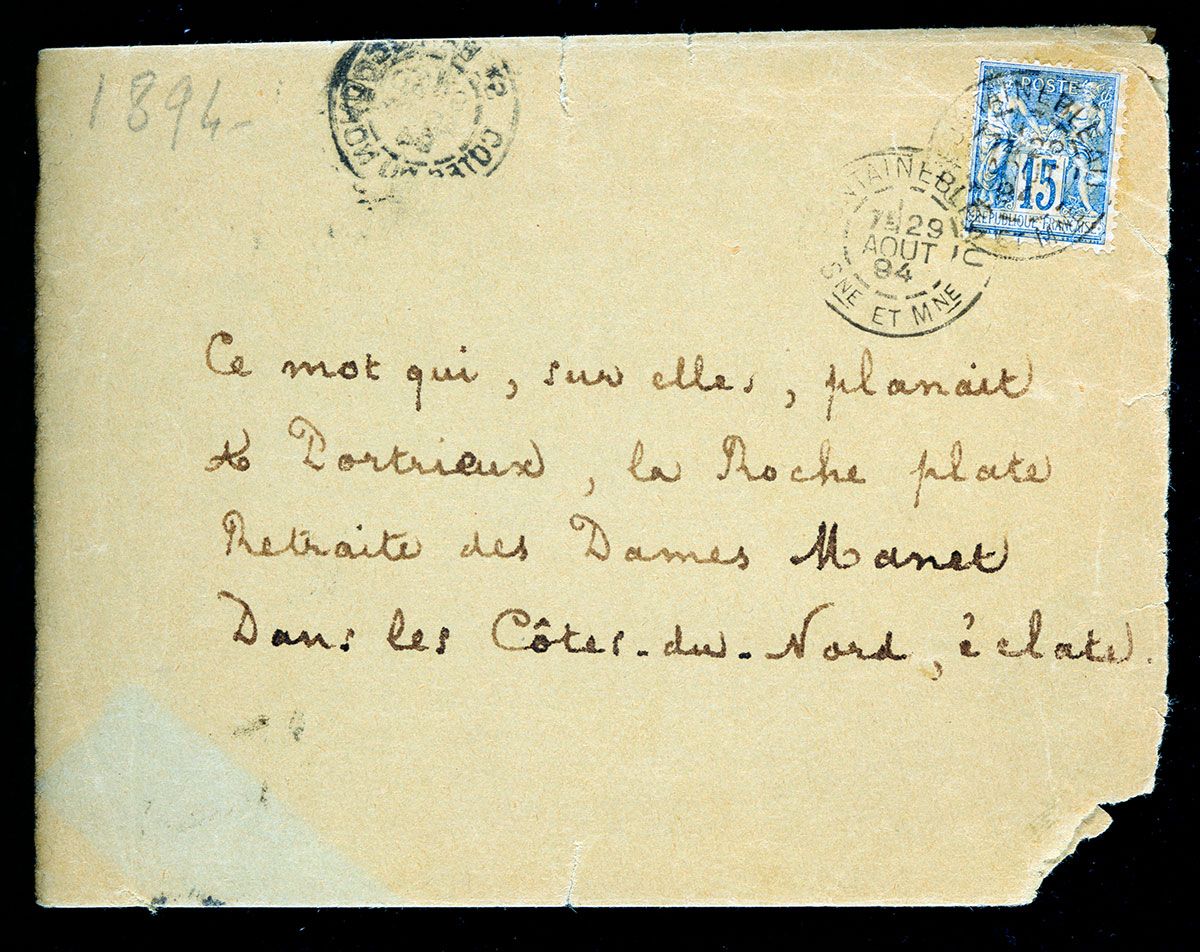 1894-
POSTES
15
REPUBLIQUE FRANÇAISE
FONTAINEBLEAU
7E 29
AOUT
94
SNE ET MNE
Ce mot qui, sur elles, planait
à Portrieux, la Roche plate
Retraite des Dames Manet
Dans les Côtes-du-Nord, éclate.